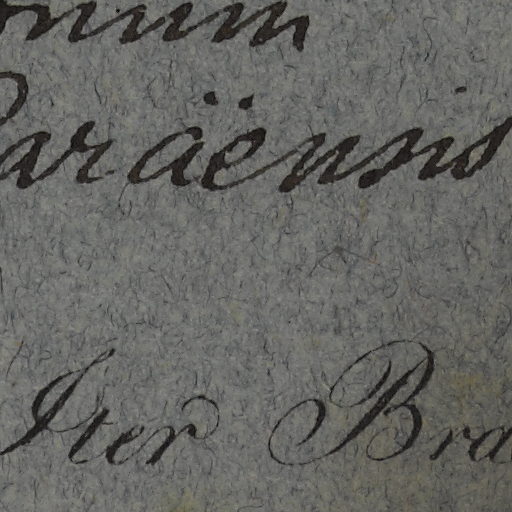 onum
Paraënsis
Iter Bra